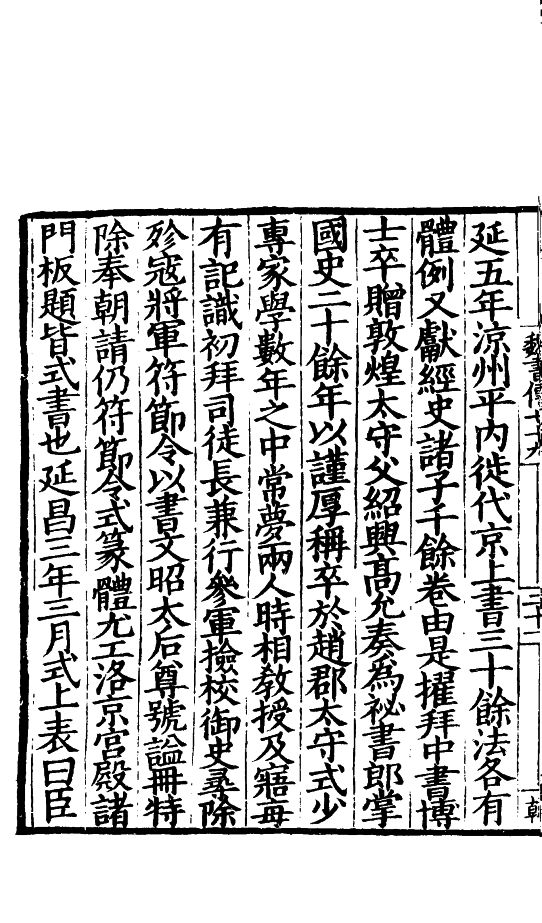 延五年涼州平內徙代京上書三十餘法各有
體例又獻經史諸子千餘卷由是擢拜中書博
士卒贈敦煌太守父紹興高允奏為祕書郎掌
國史二十餘年以謹厚稱卒於趙郡太守式少
專家學數年之中常夢兩人時相教授及寤每
有記識初拜司徒長兼行參軍撿校御史尋除
殄寇將軍符節令以書文昭太后尊號諡冊特
除奉朝請仍符節令式篆體尤工洛京宮殿諸
門板題皆式書也延昌三年三月式上表曰臣